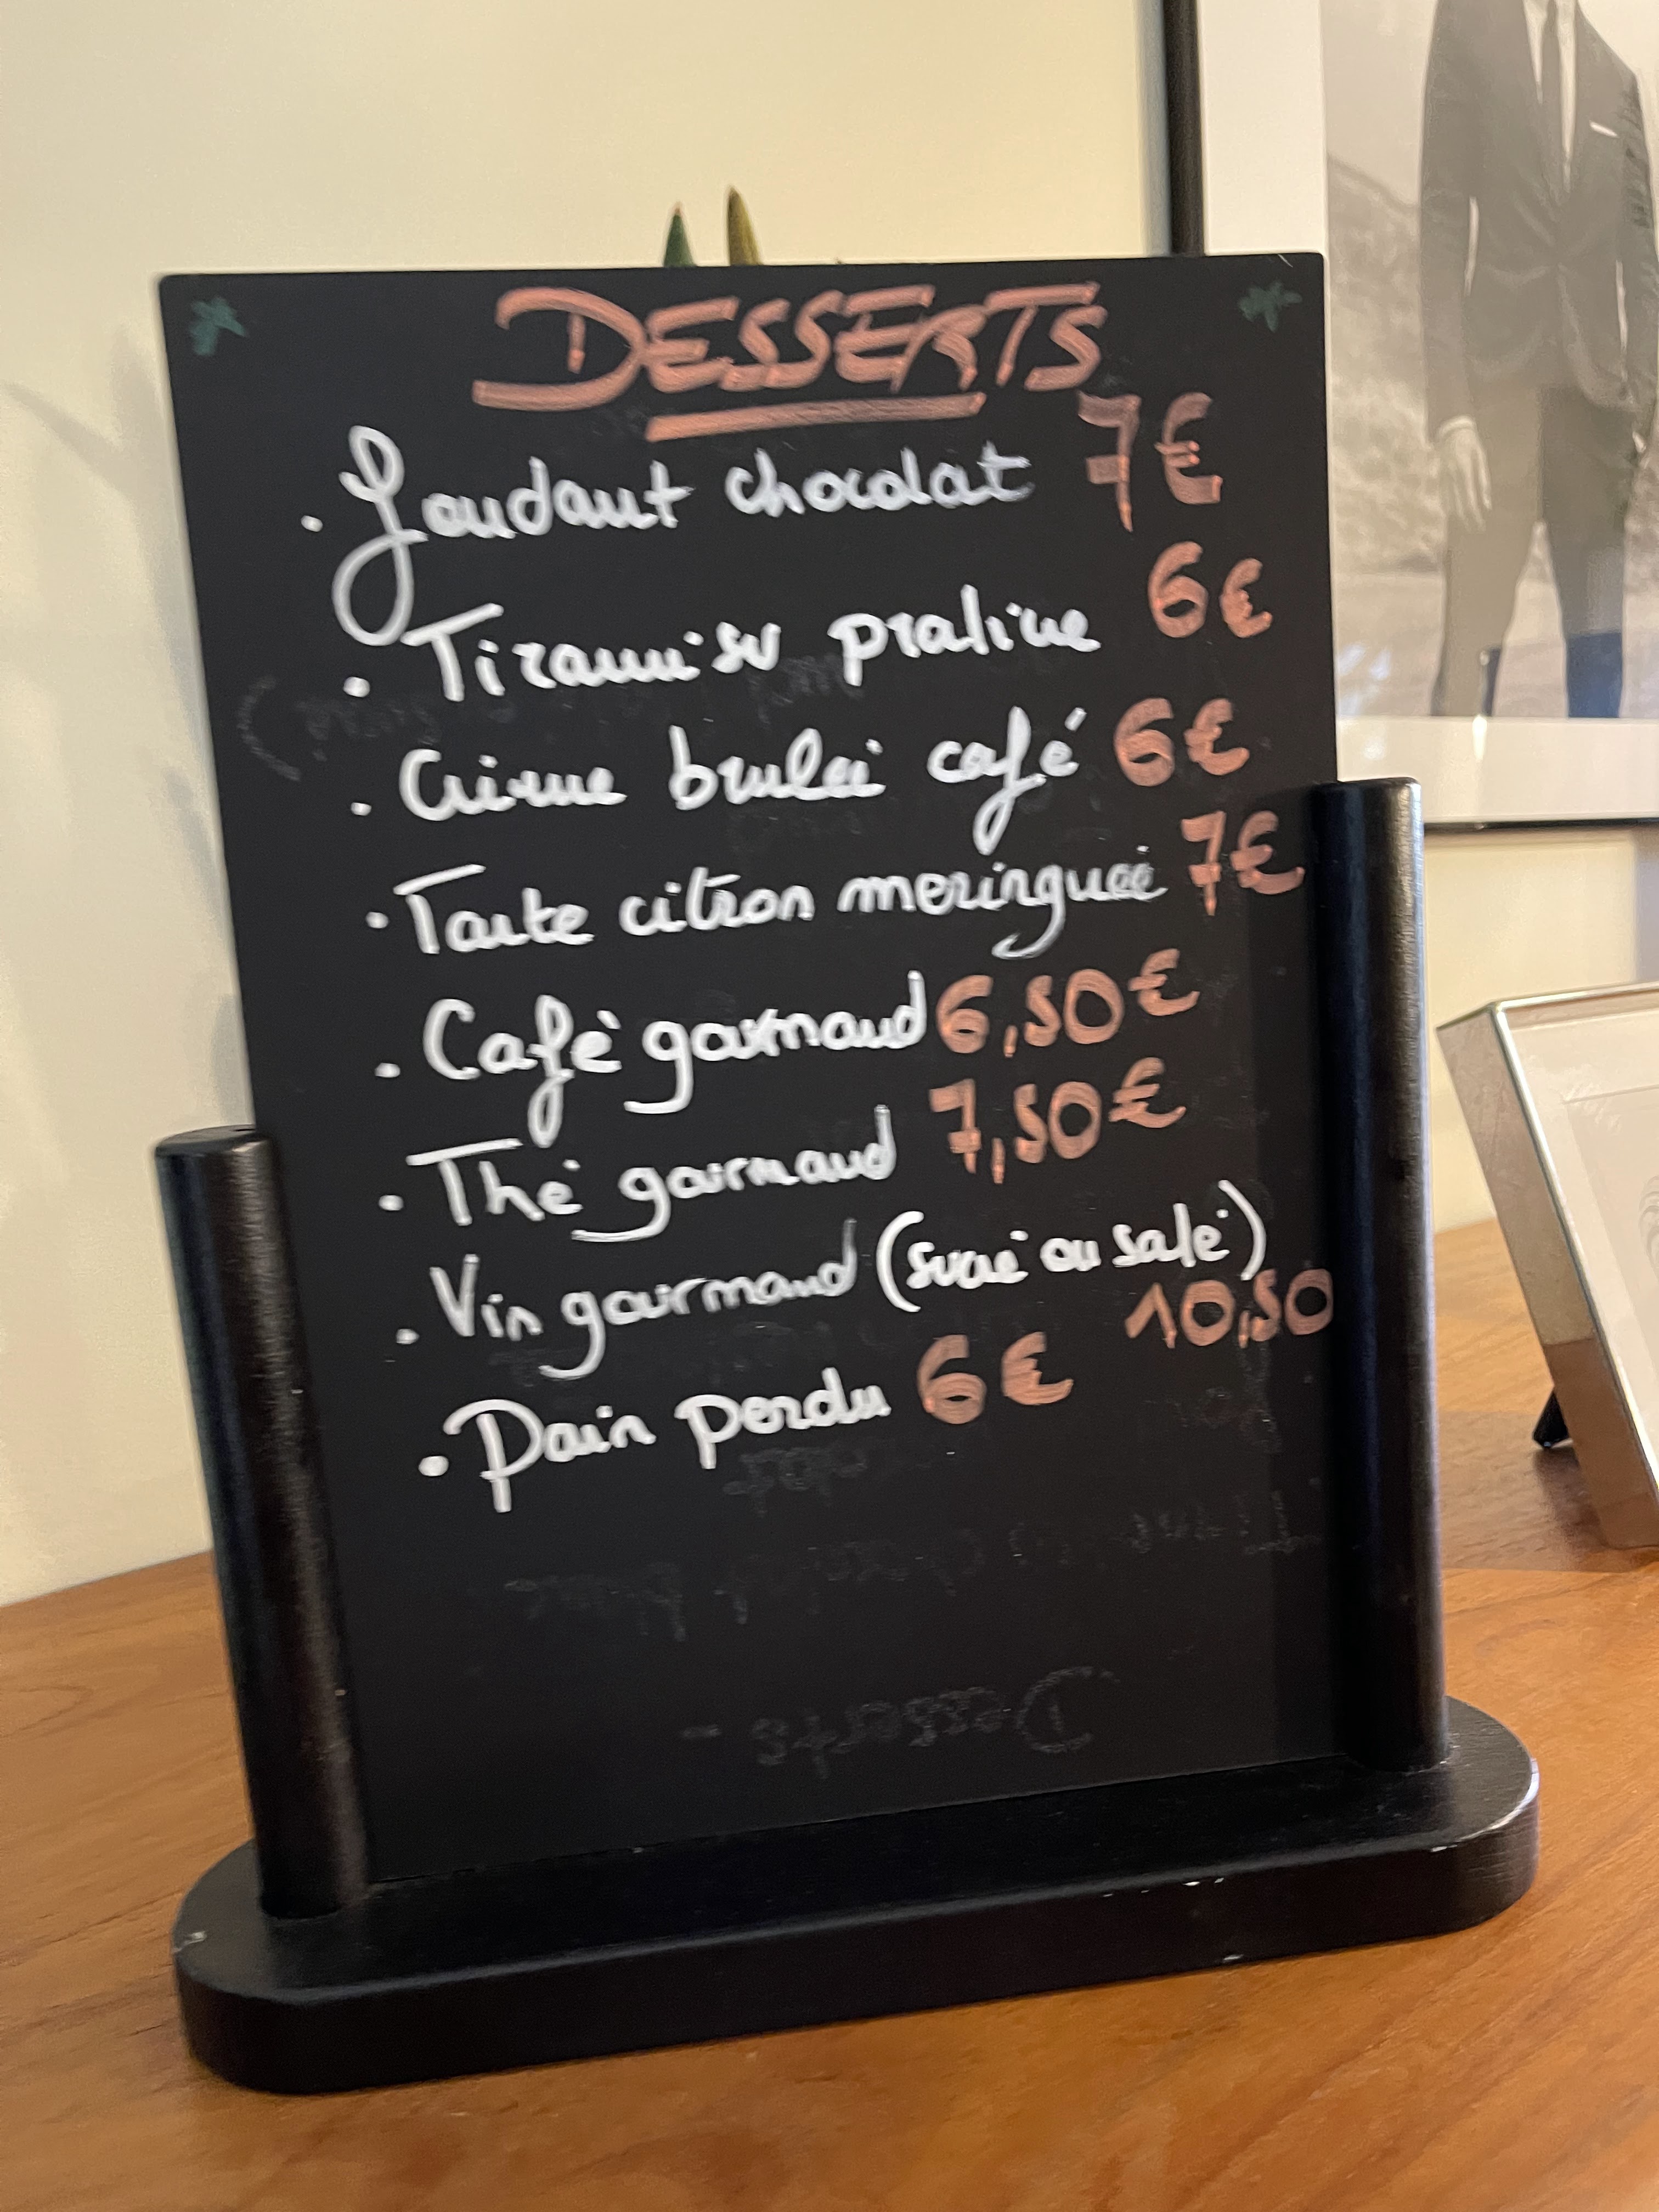 DESSERTS
. Fondant chocolat 7€
. Tiramisu praline 6€
. Crème brulée café 6€
. Tarte citron meringuée 7€
. Café gourmand 6,50€
. Thé gourmand 7,50€
. Vin gourmand (sucré ou salé)
10,50
. Pain perdu 6€
Desserts -